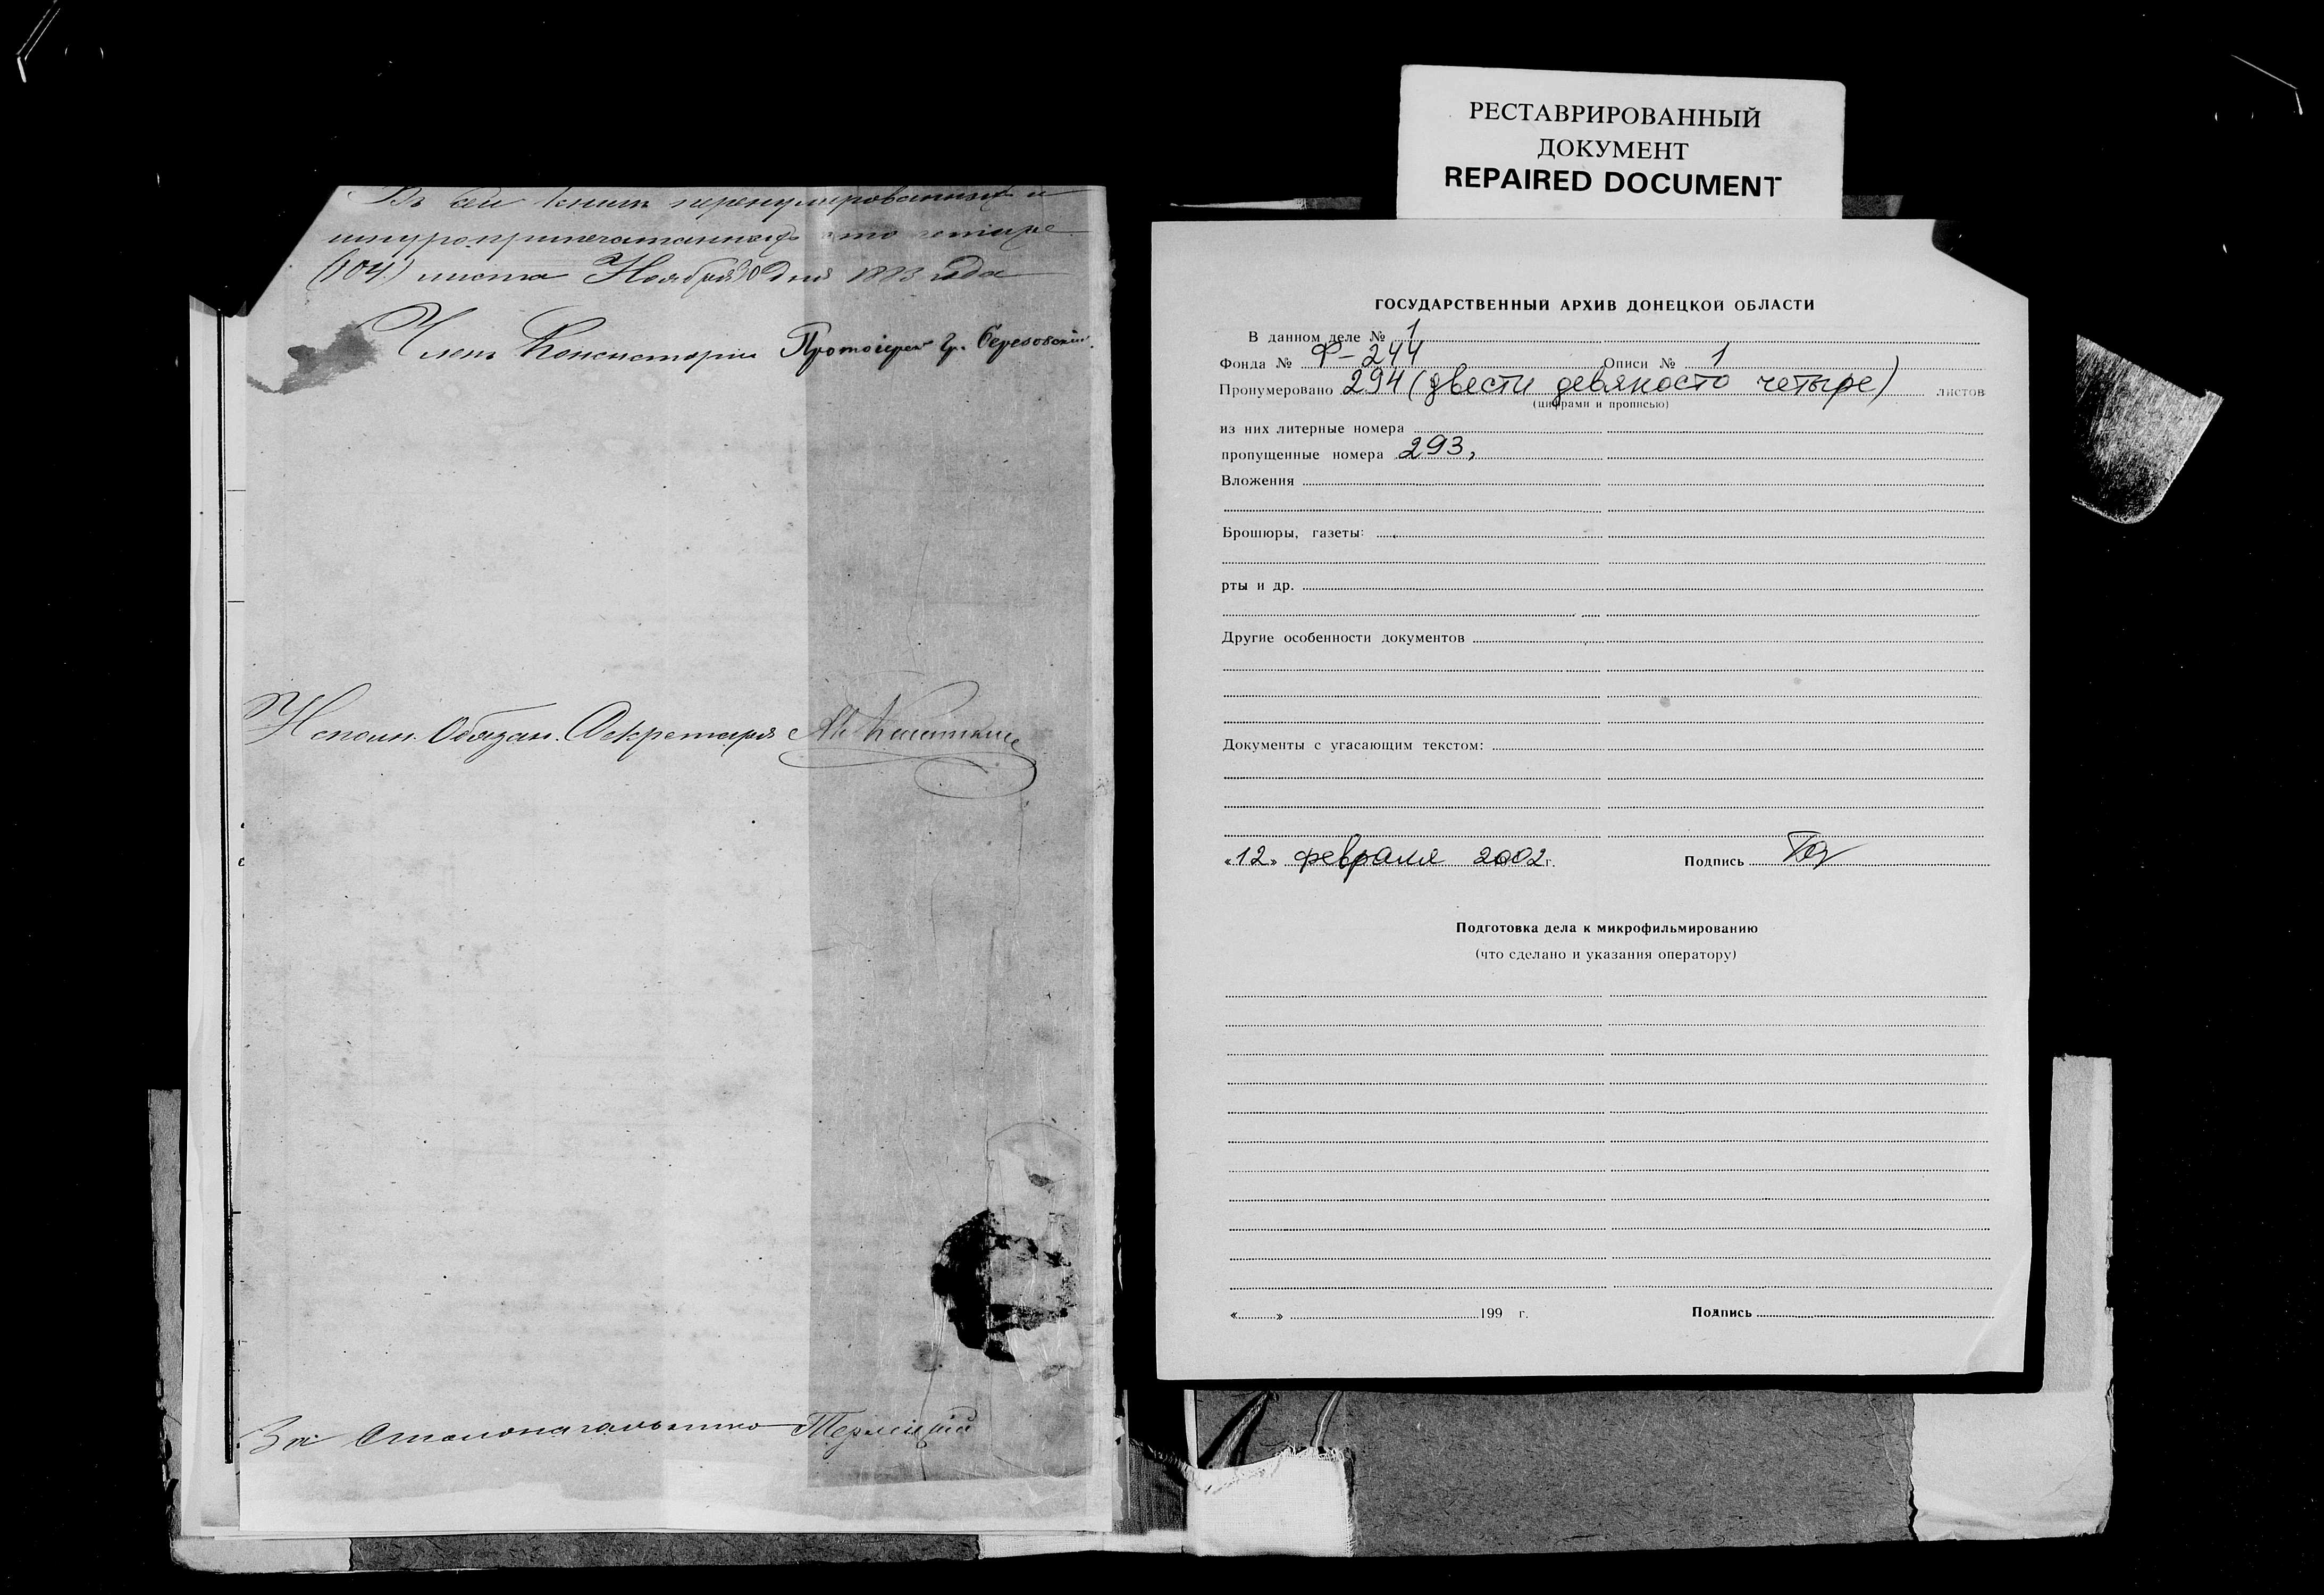 Въ сей книгѣ перенумерованныхъ и
шнуроприпечатанныхъ сто четыре
(104) листа Ноября 30 дня 1883 года
Членъ Консисторіи Протоіерей Гр.
Исполн. Обязан. Секретаря
За Столоначальника
РЕСТАВРИРОВАННЫЙ
ДОКУМЕНТ
REPAIRED DOCUMENT
ГОСУДАРСТВЕННЫЙ АРХИВ ДОНЕЦКОЙ ОБЛАСТИ
В данном деле № 1
Фонда № Ф-244 Описи № 1
Пронумеровано 294 (двести девяносто четыре) листов
(цифрами и прописью)
из них литерные номера
пропущенные номера 293,
Вложения
Брошюры, газеты:
рты и др.
Другие особенности документов
Документы с угасающим текстом:
«12» февраля 2002 г. Подпись
Подготовка дела к микрофильмированию
(что сделано и указания оператору)
« » 199 г. Подпись